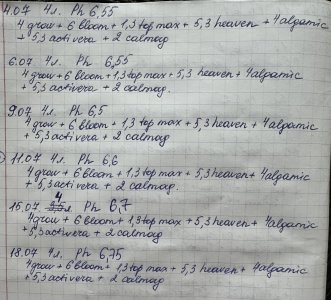 4.07 4л. Ph 6,55
4 grow + 6 bloom + 1,3 top max + 5,3 heaven + 4 algamic
+ 5,3 activera + 2 calmag
6.07 4л. Ph 6,55
4 grow + 6 bloom + 1,3 top max + 5,3 heaven + 4 algamic
+ 5,3 activera + 2 calmag.
9.07 4л Ph 6,5
4 grow + 6 bloom + 1,3 top max + 5,3 heaven + 4 algamic
+ 5,3 activera + 2 calmag
11.07 4л. Ph 6,6
4 grow + 6 bloom + 1,3 top max + 5,3 heaven + 4 algamic
+ 5,3 activera + 2 calmag.
15.07 4 Ph 6,7
4 grow + 6 bloom + 1,3 top max + 5,3 heaven + 4 algamic
+ 5,3 activera + 2 calmag
18.07 4л. Ph 6,75
4 grow + 6 bloom + 1,3 top max + 5,3 heaven + 4 algamic
+ 5,3 activera + 2 calmag